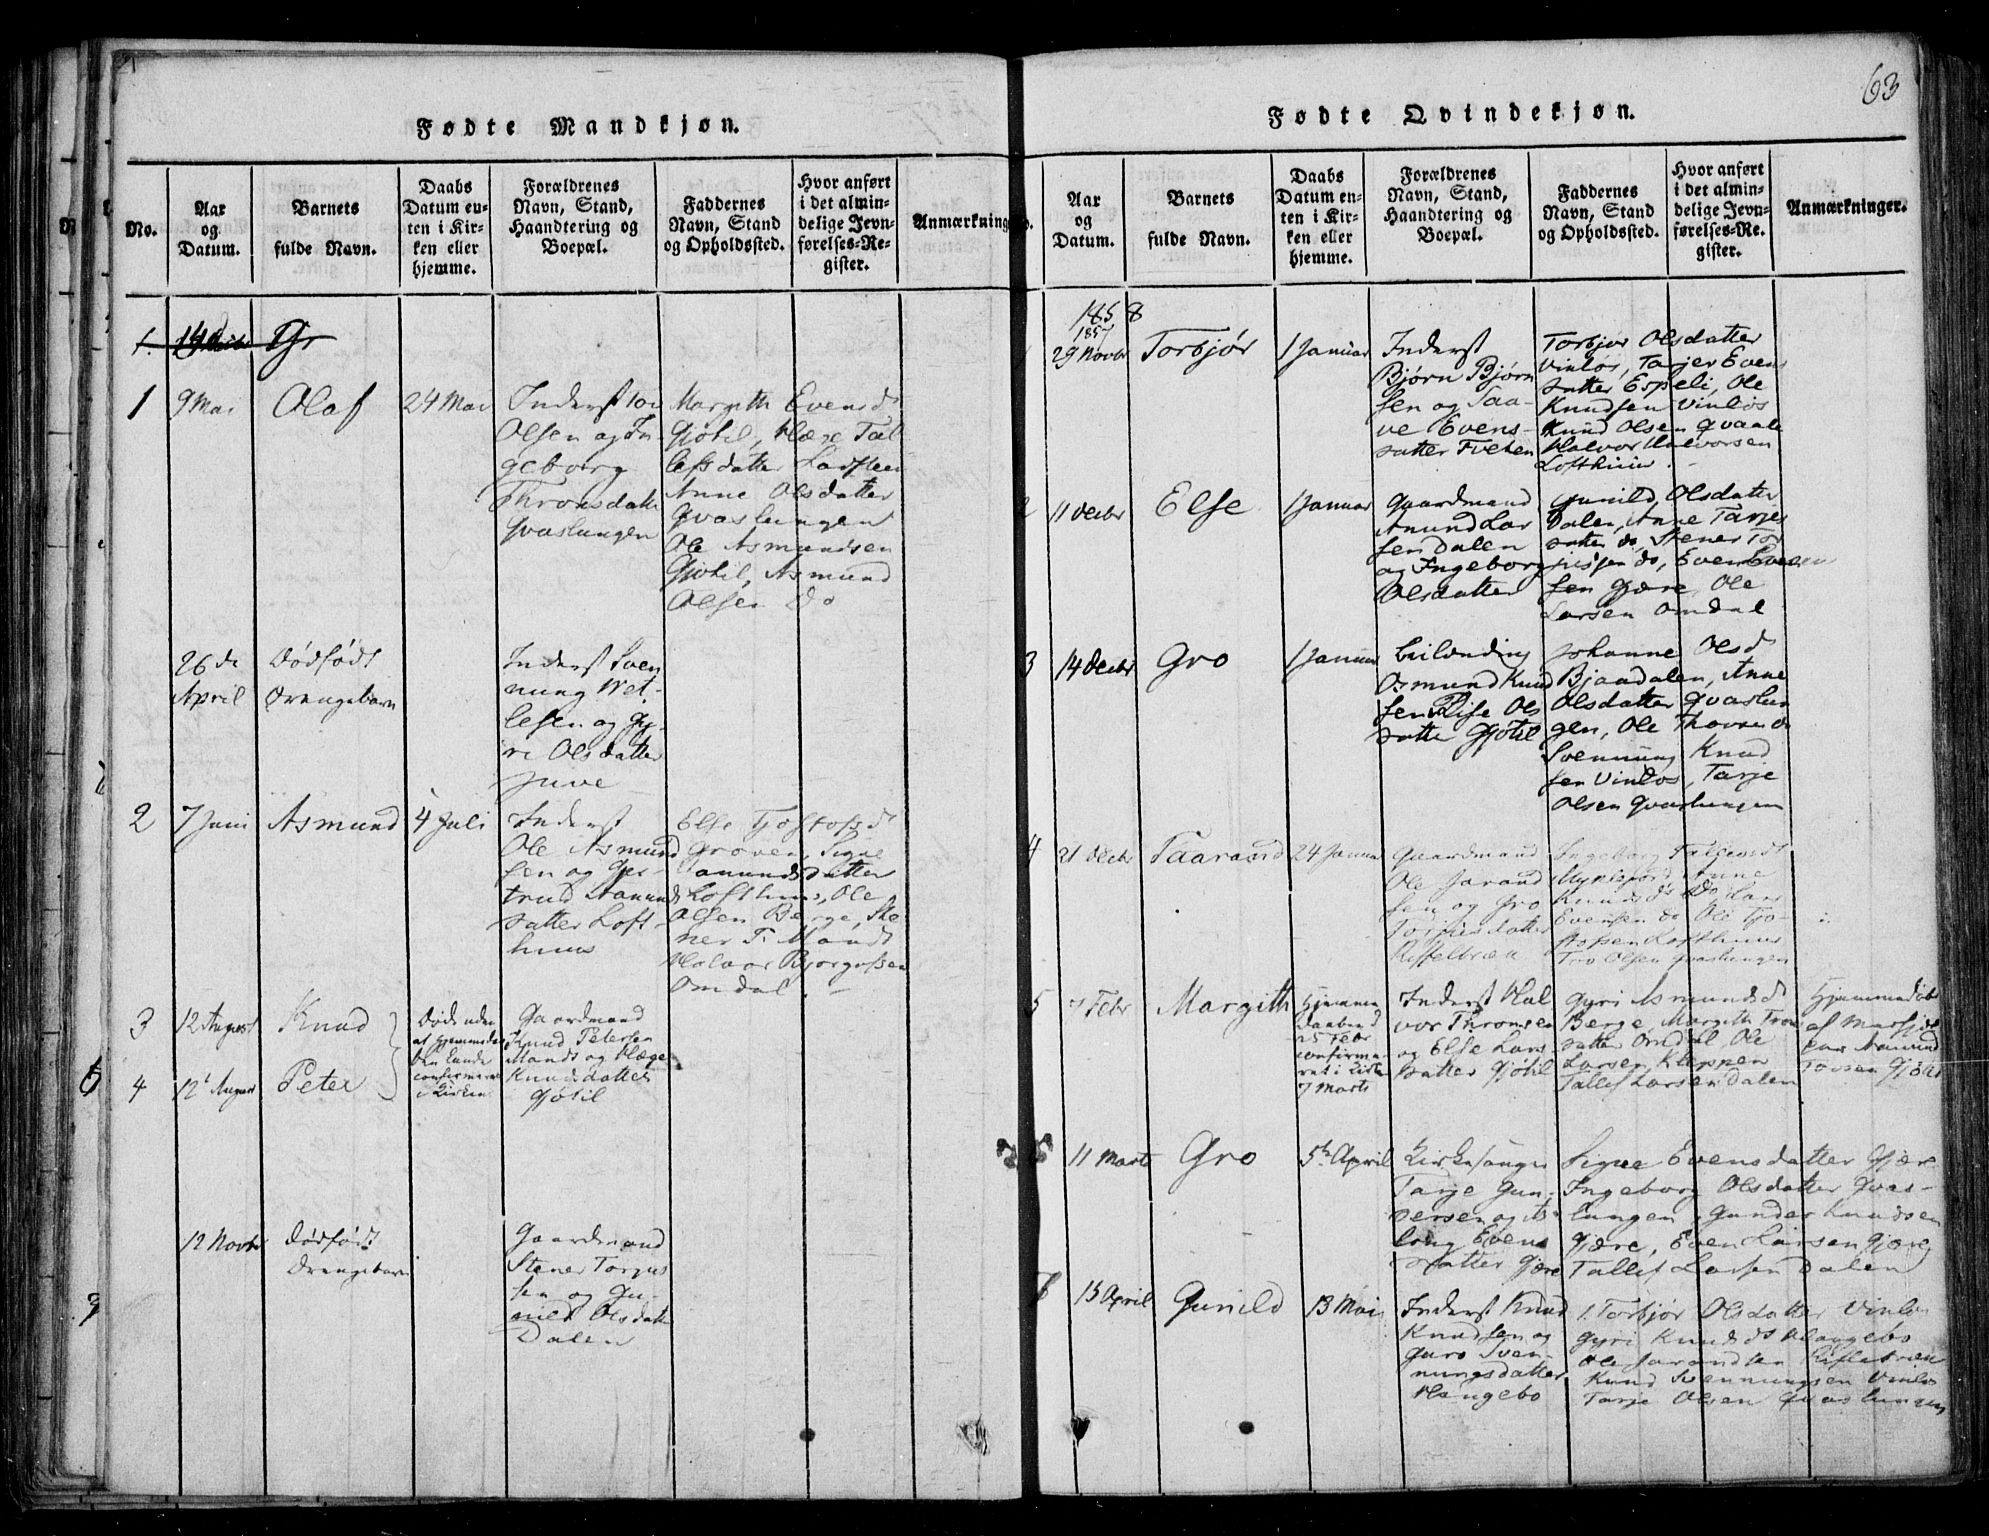 63
Fødte Mandkjøn.
No.
Aar
og
Datum.
Barnets
fulde Navn.
Daabs
Datum en-
ten i Kir-
ken eller
hjemme.
Forældrenes
Navn, Stand,
Haandtering og
Boepæl.
Faddernes
Navn, Stand
og Opholdssted.
Hvor anført
i det almin-
delige Jevn-
førelses-Re-
gister.
Anmærkning
1. 14 Decbr Gr
1
9 Mai
Olaf
24 Mai
Inderst Tov
Olsen og In
geborg
Thronsdatt
Qvaslungen
Margith Evensd
Gjøtil, Hæge Tal
lefsdatter
Anne Olsdatter
Qvaslungen
Ole Asmundsen
Gjøtil, Asmund
Olsen Do
26 de
April
Dødfødt
Drengebarn
Inderst Sven
nung Vet-
lesen og Gy-
ri Olsdatter
Juve
2
7 Juni
Asmund
4 Juli
Inderst
Ole Asmund
sen og Ger-
trud Aamund
datter Loft-
huus
Else Tjostofsd
Groven, Signe
Aamundsdatter
Lofthuus, Ole
Olsen Berge, Ste
ner T. Mandt
Halvor Bjørgufsen
Omdal. -
3
12 August
Knud
4
12t August
Peter
Døde uden
at hjemmeda
ben kunde
confirmeres
i Kirken
Gaardmand
Knud Petersen
Mandt og Hæge
Knudsdatter
Gjøtil
12 Novbr
Dødfødt
Drengebarn
Gaardmand
Stener Torjus
sen og Gu-
nild Olsdatt
Dalen
Fødte Qvindekjøn.
Aar
og
Datum.
Barnets
fulde Navn.
Daabs
Datum en-
ten i Kir-
ken eller
hjemme.
Forældrenes
Navn, Stand,
Haandtering og
Boepæl.
Faddernes
Navn, Stand
og Opholdssted.
Hvor anført
i det almin-
delige Jevn-
førelses-Re-
gister.
Anmærkninger.
1858
1857
29 Novbr
Torbjør
1 Januar
Inderst
Bjørn Bjørn
sen og Taa-
ve Evens-
datter Tveten
Torbjør Olsdatter
Vinløs, Tarjer Evens
datter Espeli, Ole
Knudsen Vinløs
Knud Olsen Qvaale
Halvor Halvorsen
Lofthuus. -
2
11 Decbr
Else
1 Januar
Gaardmand
Anund Lar
sen Dalen
og Ingeborg
Olsdatter
Gunild Olsdatter
Dalen, Anne Tarjes
datter do, Stener Tor
jussen do, Even
sen Gjære, Ole
Larsen Omdal
3
14 Decbr
Gro
1 Januar
Leilænding
Osmund Knud
sen Else Ols
datter Gjøtil
Johanne Olsd
Bjaadalen, Anne
Olsdatter Qvaslun
gen, Ole Thovsen do
Svennung Knud
sen Vinløs, Tarje
Olsen Qvaslungen
4
21 Decbr
Taarand
24 Janua
Gaardmand
Ole Jarand
sen og Gro
Torjusdatter
Riffelbræn
Ingeborg Tallevsd
Mykleford, Anne
Knudsd Do Lars
Evensen do Ole Tjo-
stofsen Lofthuus
Tov Olsen Qvaslungen
5
7 Febr
Margith
Hjemme
Daaben d
25 Febr
confirme
ret i Kirke
7 Marts
Inderst Hal
vor Thronsen
og Else Lars
datter Gjøtil
Gyri Asmundsd
Berge, Margith Trons
datter Omdal, Ole
Larsen Kleppen
Tallef Larsen Dalen
Hjemmedøbt
af
Aamund
Tovsen Gjøtil
11 Marts
Gro
5te April
Kirkesanger
Tarje Gun-
dersen og As
loug Evens
datter Gjære
Signe Evensdatter Gjære
Ingeborg Olsdatter Qvas-
lungen, Gunder Knudsen
Gjære, Even Larsen Gjære
Tallef Larsen Dalen
7
15 April
Gunild
13 Mai
Inderst Knud
Knudsen og
Guro Sven-
nungsdatter
Haugebo
1. Torbjør Olsdatter Vinløs
Gyri Knudsd Haugebo
Ole Jarandsen Riflebræn
Knud Svennungsen Vinløs
Tarje Olsen Qvaslungen